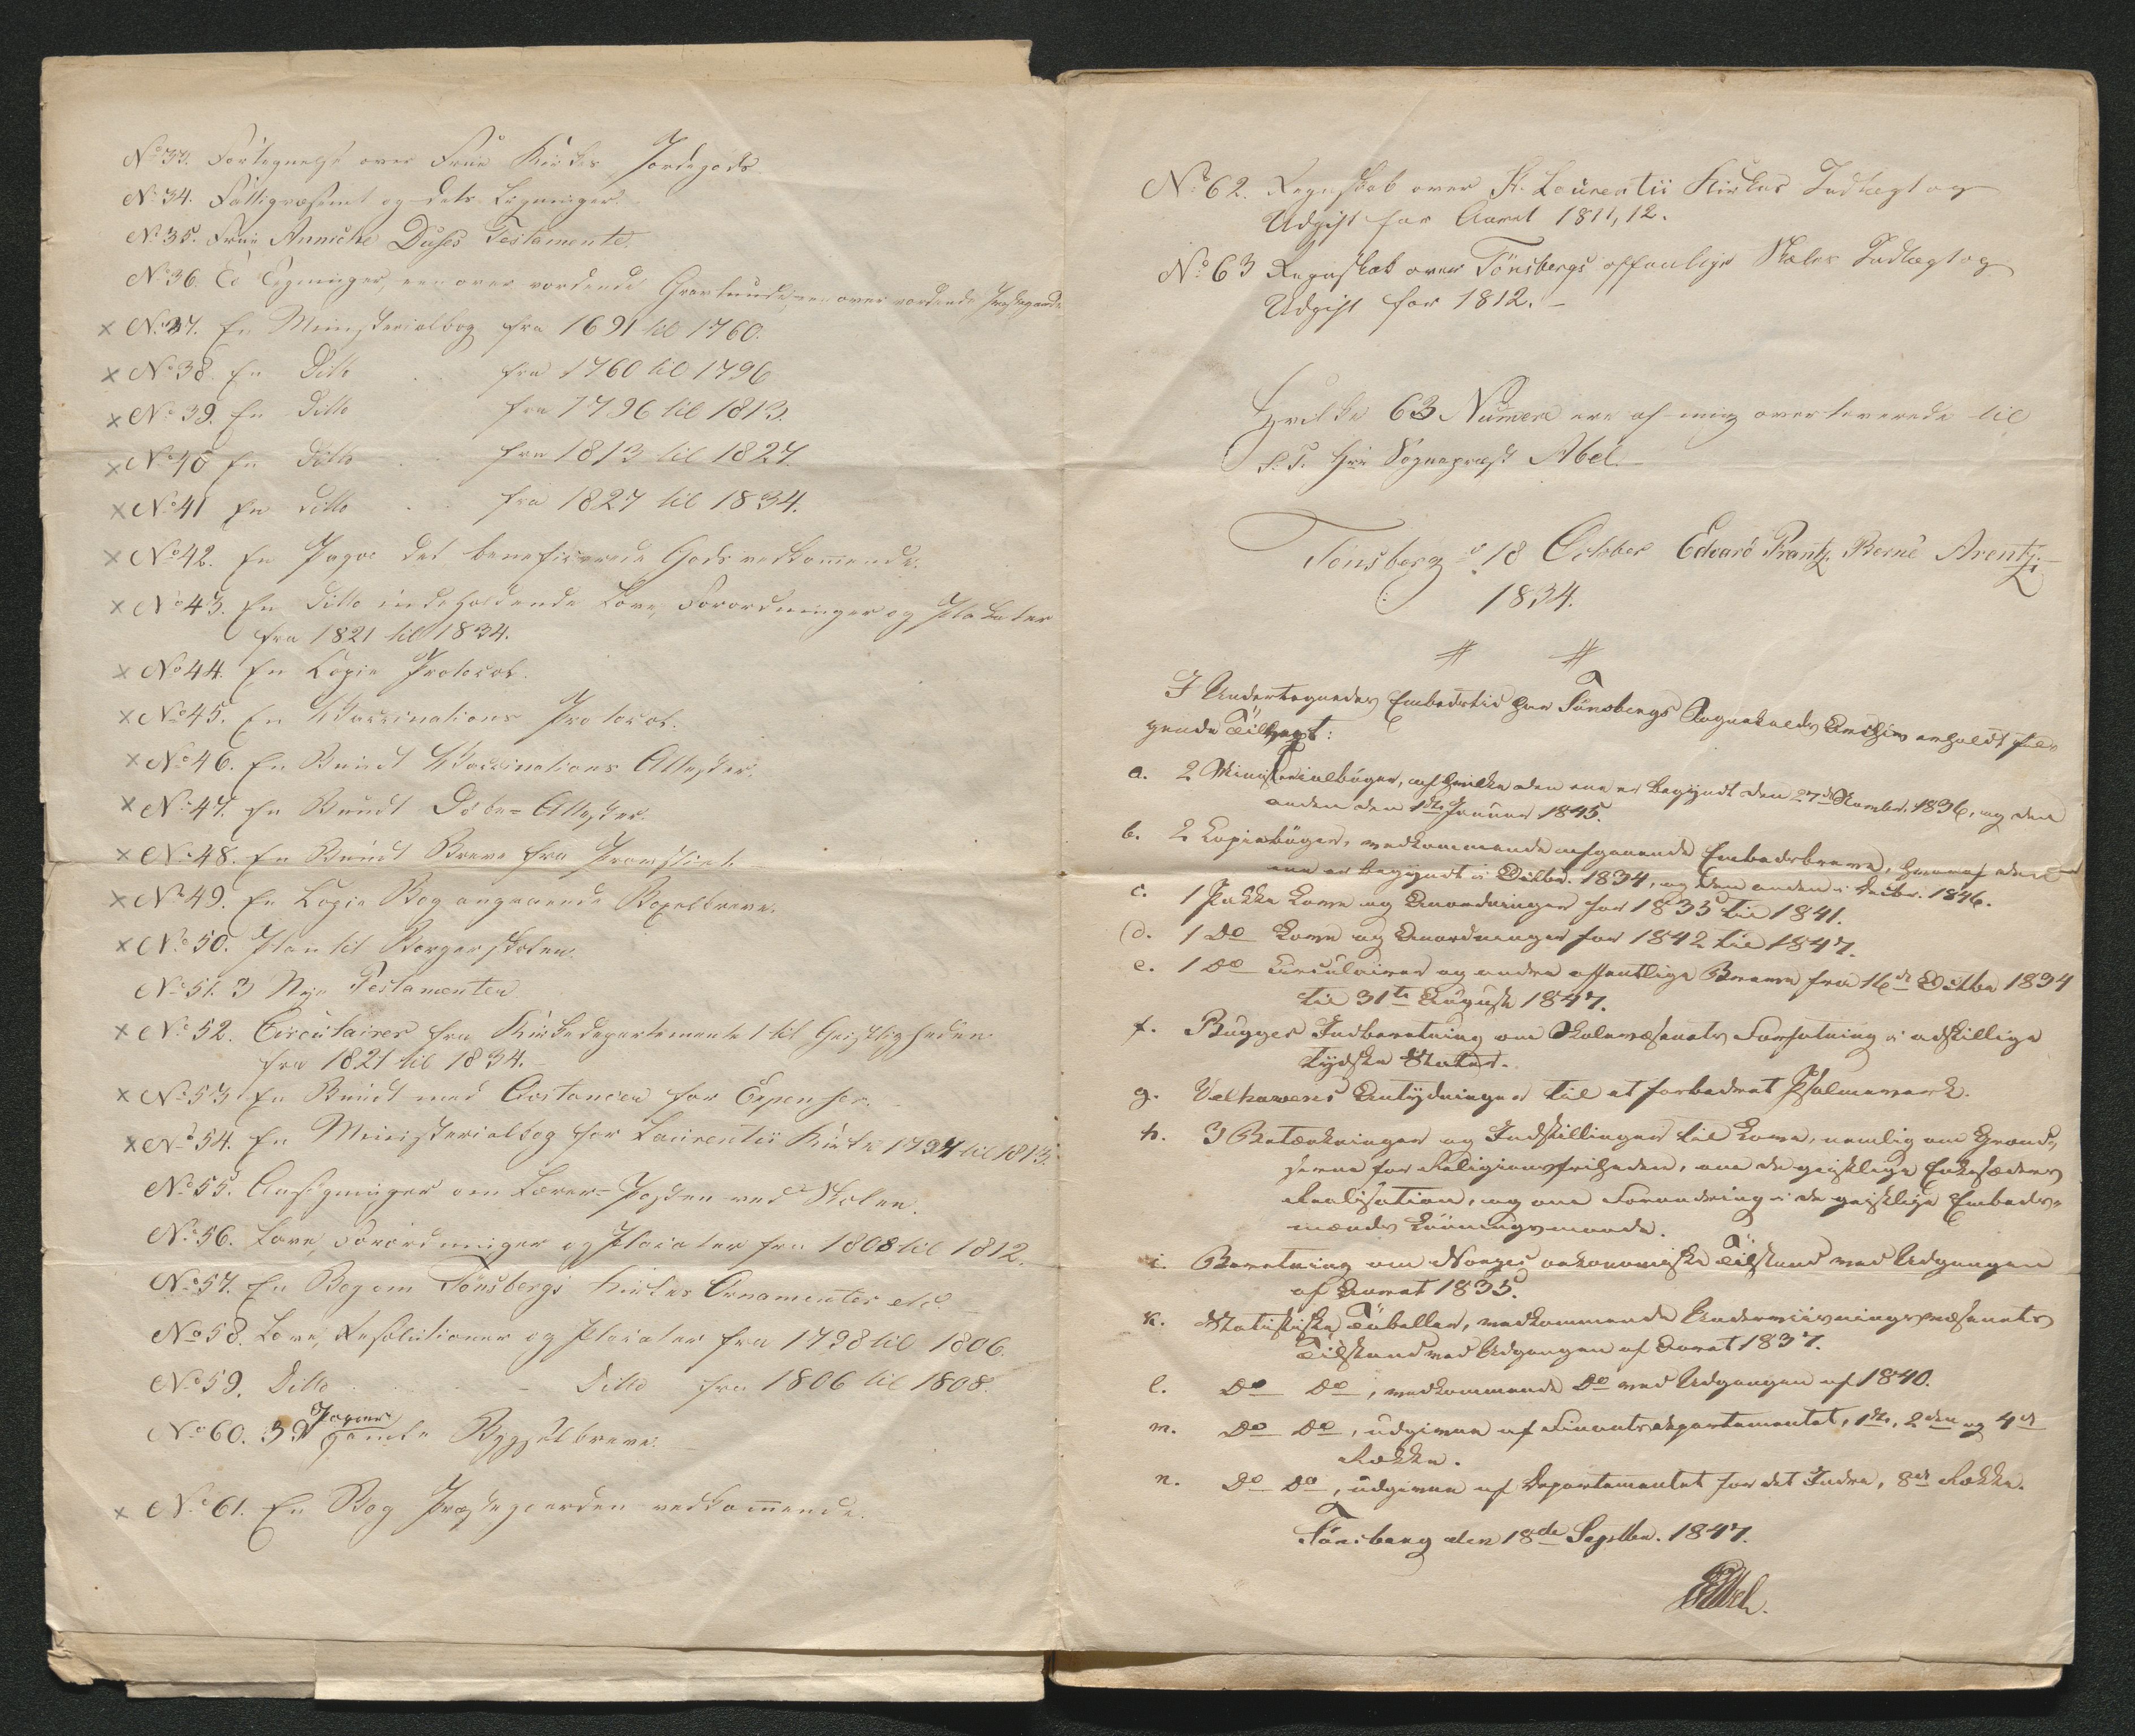 No 33. Fortegnelse over Frue Kirkes Jordegods.
No 34. Fattigvæsenet og dets Ligninger.
No 35. Frue Annicke Duses Testamente.
No 36. To Tegninger, een over vordende Gravlunde, een over vordende Præstegaard
× No 37. En Ministerialbog fra 1691 til 1760.
× No 38. En Ditto fra 1760 til 1796
× No 39. En Ditto fra 1796 til 1813.
× No 40 En Ditto fra 1813 til 1827.
× No 41 En Ditto fra 1827 til 1834.
× No 42. En Pagve det beneficerede Gods vedkom̄ende.
× No 43. En Ditto indeholdende Love, Forordninger og Plakater
fra 1821 til 1834.
× No 44. En Copie Protocol.
× No 45. En Vaccinations Protocol.
× No 46. En Bundt Vaccinations Attester.
× No 47. En Bundt Døbe-Attester.
× No 48. En Bundt Breve fra Provstiet.
× No 49. En Copie Bog angaaende Bøxelbreve.
× No 50. Plan til Borgerskolen.
No 51. 3 Nye Testamenter
× No 52. Circulairer fra Kirkedepartementet til Geistligheden
fra 1821 til 1834.
× No 53 En Bundt med for Expenser.
× No 54. En Ministerialbog for Laurentii Kirke 1794 til 1813.
No 55. Ansøgninger om Lærer-Posten ved Skolen.
No 56. Love, Forordninger og Placater fra 1808 til 1812.
No 57. En Bog om Tönsbergs Kirkes Ornamenter etc.
No 58. Love, Resolutioner og Placater fra 1798 til 1806.
No 59. Ditto Ditto fra 1806 til 1808.
Pagver
No 60. 39 gamle Bygselbreve.
× No 61. En Bog Præstegaarden vedkom̄ende.
No 62. Regnskab over St. Laurentii Kirkes Indtægt og
Udgift for Aaret 1811, 12.
No 63 Regnskab over Tönsbergs offentlige Skoles Indtægt og
Udgift for 1812. –
Hvilke 63 Numere ere af mig overleverede til
S. T. Hrr Sognepræst Abel. –
Tönsberg d 18 October Edvard Frantz Berné Arentz.
1834.
# #
I Undertegnedes Embedstid har Tönsbergs Sognekalds Archiv erholdt føl-
gende Tilvæxt:
a. 2 Ministerialbøger, af hvilke den ene er begyndt den 27de Novembr. 1836, og den
anden den 1ste Januar 1845.
b. 2 Copiebøger, vedkommende afgaaende Embedsbreve, hvoraf den
ene er begyndt i Octbr. 1834, og den anden i Decbr. 1846.
c. 1 Pakke Love og Anordninger for 1835 til 1841.
d. 1 Do Love og Anordninger for 1842 til 1847.
e. 1 Do Circulairer og andre offentlige Breve fra 16de Octbr 1834
til 31te August 1847.
f. Bugges Indberetning om Skolevæsenets Forfatning i adskillige
tydske Stater.
g. Velhavens Antydninger til et forbedret Psalmeværk.
h. 3 Betænkninger og Indstillinger til Love, nemlig om Grænd-
serne for Religionsfriheden, om de geistlige Enkesæders
Realisation, og om Forandring i de geistlige Embeds-
mænds Lönningsmaade.
i. Beretning om Norges oekonomiske Tilstand ved Udgangen
af Aaret 1835.
k. Statistiske Tabeller, vedkommende Underviisningsvæsenets
Tilstand ved Udgangen af Aaret 1837.
l. Do Do, vedkommende Do ved Udgangen af 1840.
m. Do Do, udgivne af Finantsdepartementet, 1ste, 2den og 4de
Række.
n. Do Do, udgivne af Departementet for det Indre, 8de Række.
Tönsberg den 18de Septbr. 1847.
Abel.